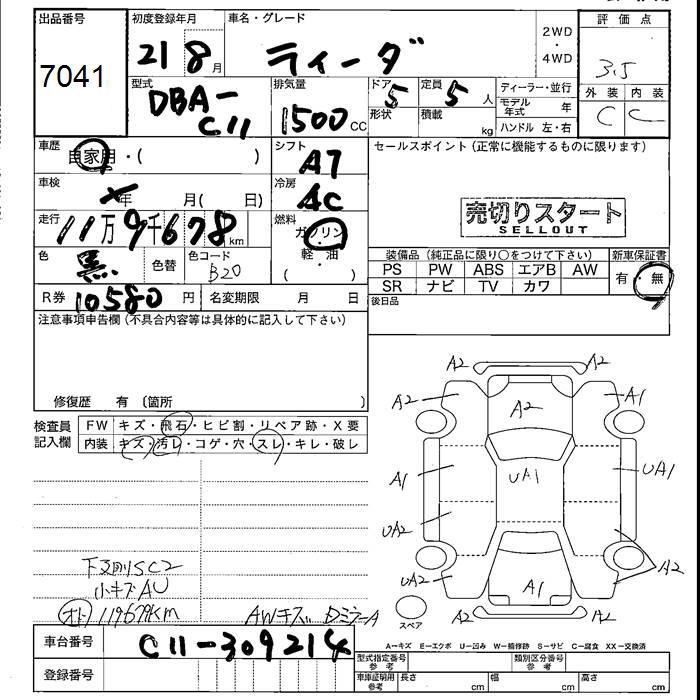 出品番号
7041
初度登録年月
21 8月
車名・グレード
ティーダ
2WD
・
4WD
評価点
3.5
外装 内装
C C
型式
DBA-
C11
排気量
1500cc
ドア
5
形状
定員
5人
積載 kg
ディーラー・並行
モデル年式 年
ハンドル 左・右
車歴
自家用・( )
シフト
A7
セールスポイント (正常に機能するものに限ります)
車検
年 月( 日)
冷房
AC
売切りスタート
SELLOUT
走行
11万9千678km
燃料
ガソリン
・
軽・油
色
黒
色替
色コード
B20
装備品 (純正品に限り○をつけて下さい)
新車保証書
PS PW ABS エアB AW
SR ナビ TV カワ
有・無
後日品
R券 10580円
名変期限 月 日
注意事項申告欄 (不具合内容等は具体的に記入して下さい)
修復歴 有 〔箇所 〕
検査員
記入欄
FW キズ・飛石・ヒビ割・リペア跡・X要
内装 キズ・汚レ・コゲ・穴・スレ・キレ・破レ
A2 A2
A2 A2 A1
A1 UA1 UA1
UA2
UA2 A1 A2
A2 A2
スペア
下廻リSC2
小キズAU
119679km
AWキズ DミラーA
車台番号
C11-309214
登録番号
A-キズ E-エクボ U-凹み W-補修跡 S-サビ C-腐食 XX-交換済
型式指定番号
参考
類別区分番号
参考
車庫証明用
参考
長さ cm 幅 cm 高さ cm